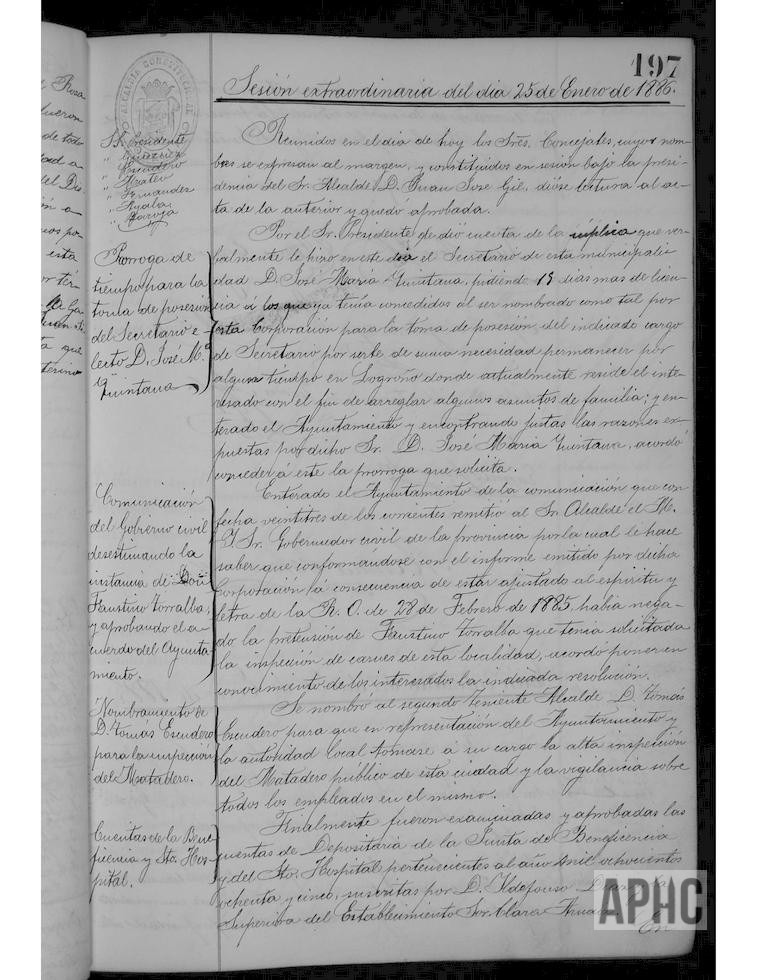 197
Sesión extraordinaria del dia 25 de Enero de 1886.
ALCALDIA CONSTITUCIONAL
Sr. Presidente
" Escudero
" Mateo
" Fernandez
" Ayala
" Baroja
Reunidos en el dia de hoy los Sres. Concejales, cuyos nom-
bres se expresan al margen, y constituidos en sesión bajo la presi-
dencia del Sr. Alcalde D. Juan José Gil, dióse lectura al ac-
ta de la anterior y quedó aprobada.
Prorroga de
tiempo para la
toma de posesión
del Secretario e-
lecto D. José M.ª
Quintana
Por el Sr. Presidente se dió cuenta de la súplica que ver-
balmente le hizo en este dia el Secretario de esta municipali-
dad D. José Maria Quintana, pidiendo 15 dias mas de licen-
cia á los que ya tenia concedidos al ser nombrado como tal por
esta Corporación para la toma de posesión del indicado cargo
de Secretario por serle de suma necesidad permanecer por
algun tiempo en Logroño donde actualmente reside el inte-
resado con el fin de arreglar algunos asuntos de familia; y en-
terado el Ayuntamiento y encontrando justas las razones ex-
puestas por dicho Sr. D. José Maria Quintana, acordó
conceder á este la prorroga que solicita.
Comunicación
del Gobierno civil
desestimando la
instancia de Don
Faustino Torralba,
y aprobando el a-
cuerdo del Ayunta-
miento.
Enterado el Ayuntamiento de la comunicación que con
fecha veintitres de los corrientes remitió al Sr. Alcalde el M.
I. Sr. Gobernador civil de la provincia por la cual le hace
saber que conformándose con el informe emitido por dicha
Corporación y á consecuencia de estar ajustado al espiritu y
letra de la R. O. de 28 de Febrero de 1885, habia nega-
do la pretensión de Faustino Torralba que tenia solicitada
la inspección de carnes de esta localidad, acordó poner en
conocimiento de los interesados la indicada resolución.
Nombramiento de
D. Tomás Escudero
para la inspección
del Matadero.
Se nombró al segundo Teniente Alcalde D. Tomás
Escudero para que en representación del Ayuntamiento y
la autoridad local tomase á su cargo la alta inspección
del Matadero público de esta ciudad y la vigilancia sobre
todos los empleados en el mismo.
Cuentas de la Bene-
ficencia y Sto. Hos-
pital.
Finalmente fueron examinadas y aprobadas las
cuentas de Depositaria de la Junta de Beneficencia
y del Sto. Hospital pertenecientes al año mil ochocientos
ochenta y cinco, suscritas por D. Ildefonso
Superiora del Establecimiento Sor. Clara
En
APHC